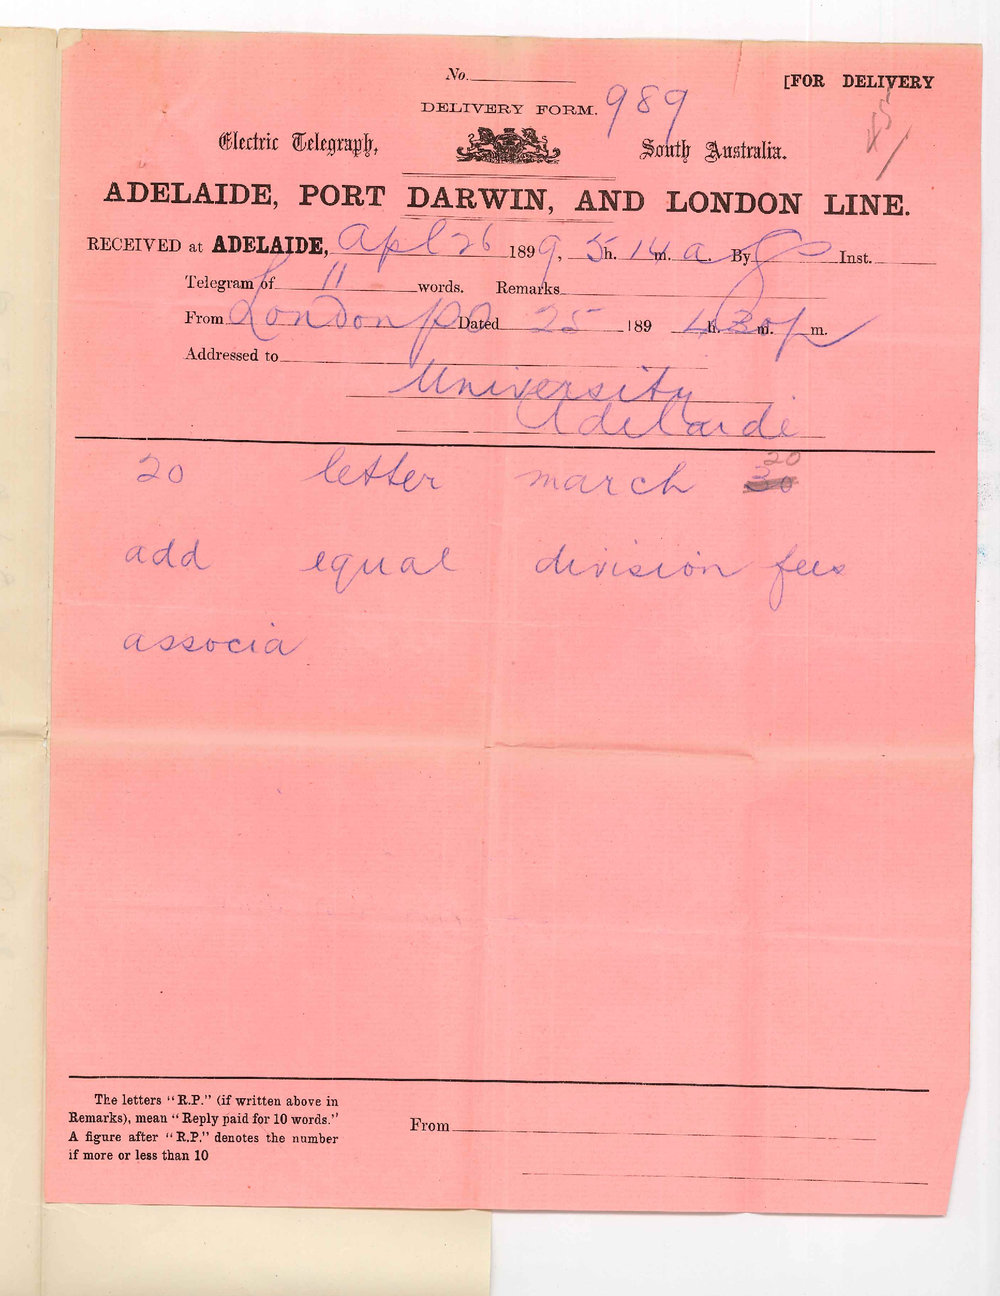 No.
[FOR DELIVERY
DELIVERY FORM. 989
Electric Telegraph, South Australia.
ADELAIDE, PORT DARWIN, AND LONDON LINE.
RECEIVED at ADELAIDE, Apl 26 1899, 5h. 14m. a. By Inst.
Telegram of 11 words. Remarks
From London Dated 25 189 4h. 30m. p m.
Addressed to
University
Adelaide
20 letter march 30 20
add equal division fees
associa
The letters "R.P." (if written above in
Remarks), mean "Reply paid for 10 words."
A figure after "R.P." denotes the number
if more or less than 10
From